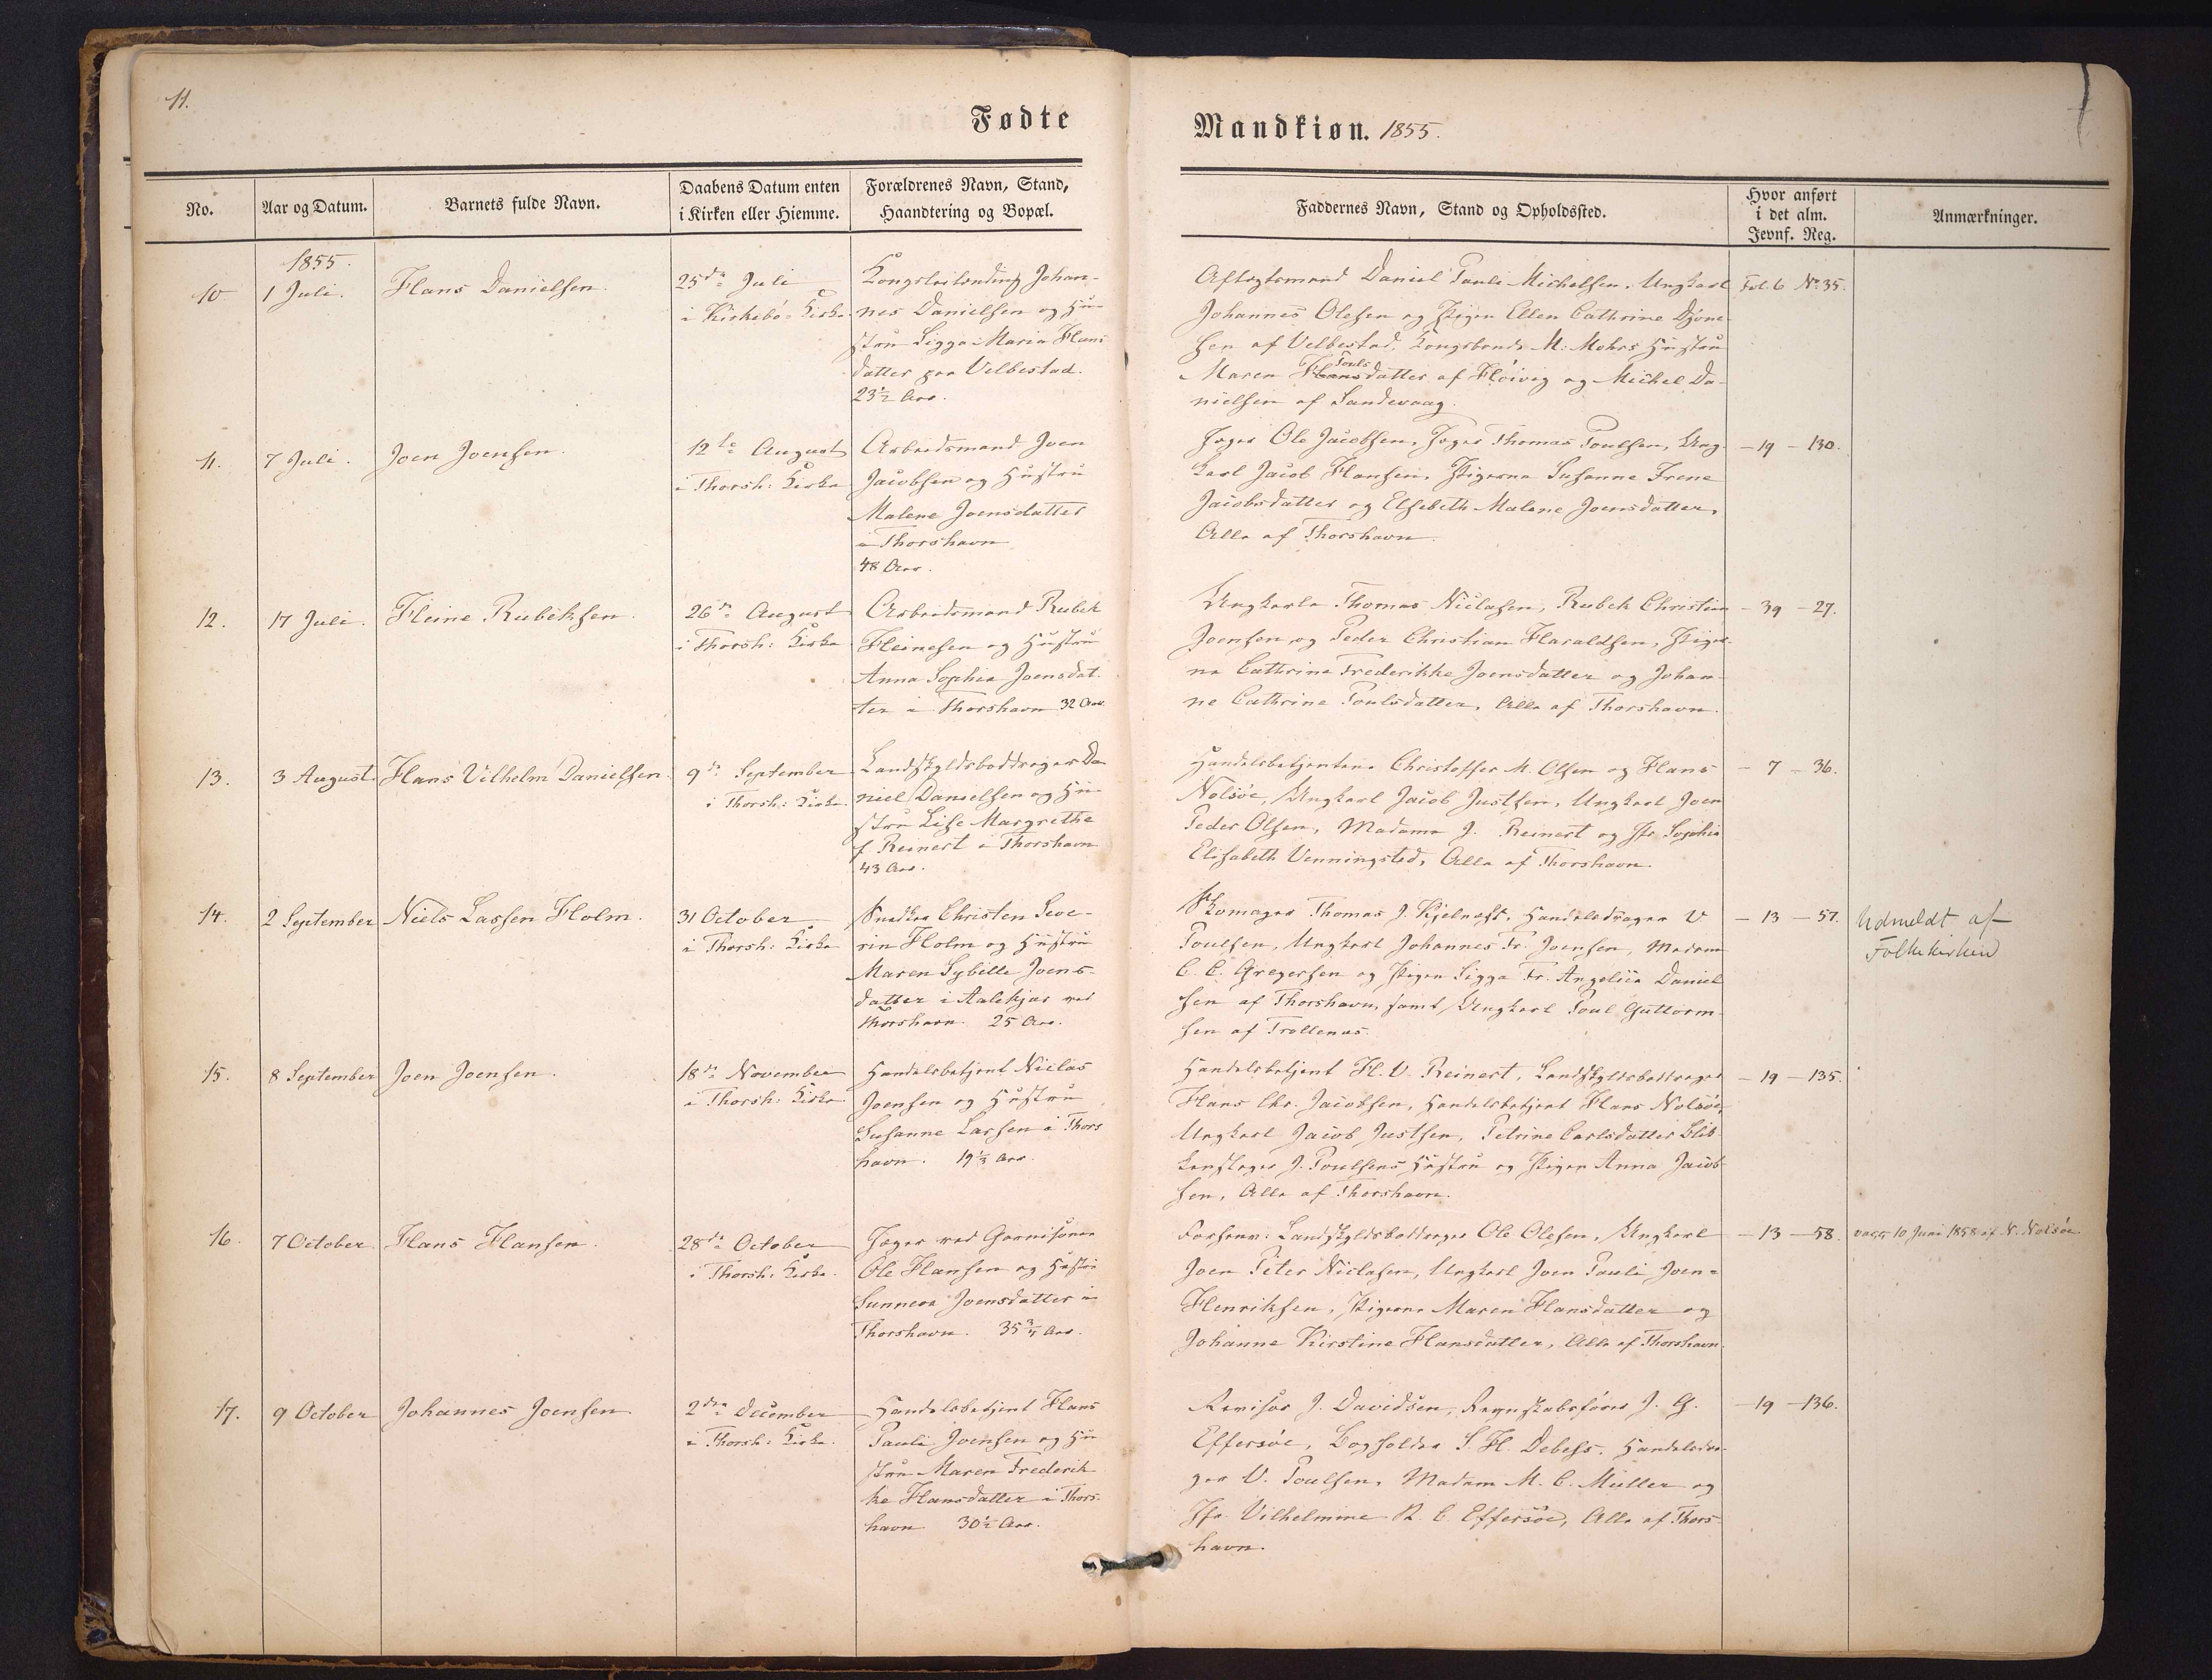 11.
Fødte
Mandkiøn. 1855.
No.
Aar og Datum.
Barnets fulde Navn.
Daabens Datum enten
i Kirken eller Hiemme.
Forældrenes Navn, Stand,
Haandtering og Bopæl.
Faddernes Navn, Stand og Opholdssted.
Hvor anført
i det alm.
Jevnf. Reg.
Anmærkninger.
1855.
10.
1 Juli.
Hans Danielsen.
25de Juli
i Kirkebö Kirke
Johan-
nes Danielsen og Hu-
stru Sigga Maria Hans-
datter paa Velbestad.
23½ Aar.
Aftægtsmand Daniel Pauli Michelsen, Ungkarl
Johannes Olesen og Pigen Ellen Cathrine Djone-
sen af Velbestad, Kongsbonde M. Mohrs Hustru
Pouls
Maren Hansdatter af Höivig og Michel Da-
nielsen af Sandevaag.
Fol. 6 No 35.
11.
7 Juli.
Joen Joensen.
12te August
i Thorsh: Kirke
Arbeidsmand Joen
Jacobsen og Hustru
Malene Joensdatter
i Thorshavn
48 Aar.
Jæger Ole Jacobsen, Jæger Thomas Poulsen, Ung-
karl Jacob Hansen, Pigerne Susanne Irene
Jacobsdatter og Elsebeth Malene Joensdatter,
Alle af Thorshavn.
- 19 - 130.
12.
17 Juli.
Heine Rubeksen.
26de August
i Thorsh: Kirke
Arbeidsmand Rubek
Heinesen og Hustru
Anna Sophia Joensdat-
ter i Thorshavn 32 Aar.
Ungkarle Thomas Niclasen, Rubek Christian
Joensen og Peder Christian Haraldsen, Piger-
ne Cathrine Frederikke Joensdatter og Johan-
ne Cathrine Poulsdatter, Alle af Thorshavn.
- 39 - 27.
13.
3 August.
Hans Vilhelm Danielsen
9de September
i Thorsh: Kirke
Landskyldsboddrager Da-
niel Danielsen og Hu-
stru Lise Margrethe
f Reinert i Thorshavn
43 Aar.
Handelsbetjentene Christoffer M. Olsen og Hans
Nolsöe, Ungkarl Jacob Justsen, Ungkarl Joen
Peder Olsen, Madame J. Reinert og Jfr. Sophia
Elisabeth Venningsted, Alle af Thorshavn.
- 7 - 36.
14.
2 September
Niels Lassen Holm.
31 October
i Thorsh: Kirke
Snedker Christen Seve-
rin Holm og Hustru
Maren Sybille Joens-
datter i Aalekjær ved
Thorshavn. 25 Aar.
Skomager Thomas J. Kjelnæs, Handelsdrager V.
Poulsen, Ungkarl Johannes Fr. Joensen, Madam
C. C. Gregersen og Pigen Sigga Fr. Angelica Daniel-
sen af Thorshavn, samt Ungkarl Poul Guttorm-
sen af Trollenæs.
- 13 - 57.
Udmeldt af
Folkekirken
15.
8 September
Joen Joensen.
18de November
i Thorsh: Kirke
Handelsbetjent Niclas
Joensen og Hustru
Susanne Larsen i Thors-
havn. 19⅓ Aar.
Handelsbetjent H. V. Reinert, Landskyldsboddrager
Hans Chr. Jacobsen, Handelsbetjent Hans Nolsöe,
Ungkarl Jacob Justsen, Petrine Carlsdatter Blik-
kenslager J. Poulsens Hustru og Pigen Anna Jacob-
sen, Alle af Thorshavn.
- 19 - 135.
16.
7 October
Hans Hansen.
28de October
i Thorsh: Kirke.
Jæger ved Garnisonen
Ole Hansen og Hustru
Sunneva Joensdatter i
Thorshavn. 35¾ Aar.
Landskyldsboddrager Ole Olesen, Ungkarl
Joen Peter Niclasen, Ungkarl Joen Pauli Joen-
Henriksen, Pigerne Maren Hansdatter og
Johanne Kirstine Hansdatter, Alle af Thorshavn.
- 13 - 58.
vacc 10 Juni 1858 af N. Nolsöe.
17.
9 October
Johannes Joensen.
2den December
i Thorsh: Kirke.
Handelsbetjent Hans
Pauli Joensen og Hu-
stru Maren Frederik-
ke Hansdatter i Thors-
havn 30½ Aar.
Revisor J. Davidsen, Regnskabsförer J. G.
Effersöe, Bogholder S. H. Debess, Handelsdra-
ger V. Poulsen, Madam M. C. Müller og
Jfr. Vilhelmine R. C. Effersöe, Alle af Thors-
havn.
- 19 - 136.